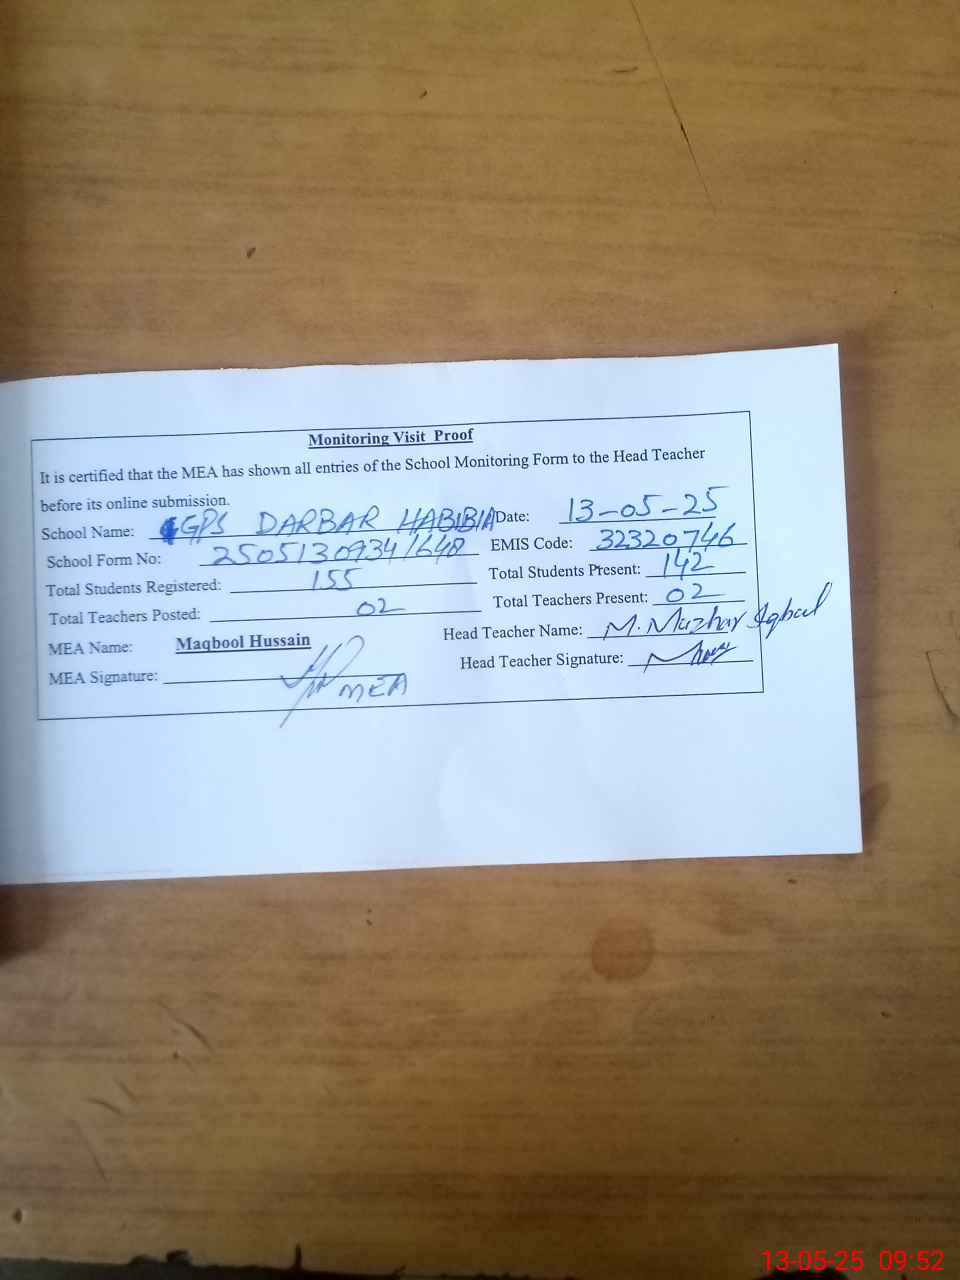 Monitoring Visit Proof
It is certified that the MEA has shown all entries of the School Monitoring Form to the Head Teacher
before its online submission.
School Name: GPS DARBAR HABIBIA Date: 13-05-25
School Form No: 2505130934/648 EMIS Code: 32320746
Total Students Registered: 155 Total Students Present: 142
Total Teachers Posted: 02 Total Teachers Present: 02
MEA Name: Maqbool Hussain Head Teacher Name: M. Mazhar Iqbal
MEA Signature: MEA Head Teacher Signature:
13-05-25 09:52